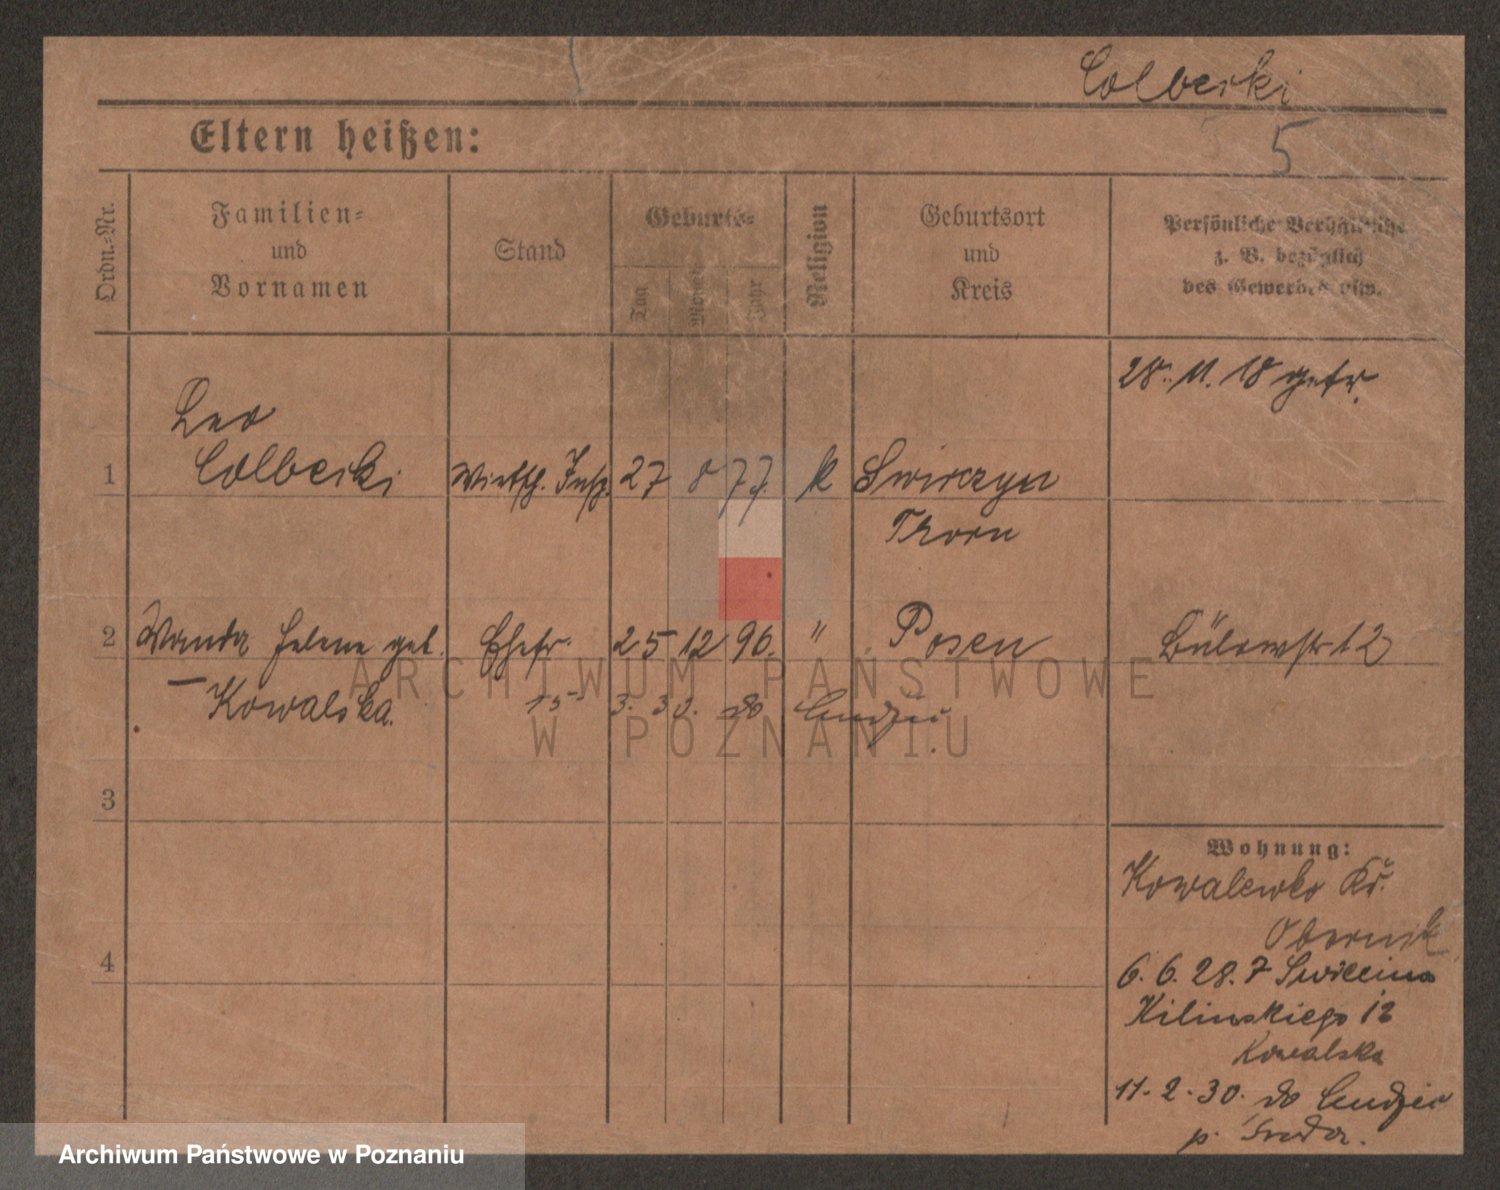 Colberki
5
Eltern heißen:
Ordn.-Nr.
Familien-
und
Vornamen
Stand
Geburts-
Tag
Monat
Jahr
Religion
Geburtsort
und
Kreis
Persönliche Verhältnisse
z. B. bezüglich
des Gewerbes usw.
28. 11. 18 getr.
1
Leo
Colberki
Wirtsch. Insp.
27
8
77.
k
Swirczyn
Thorn
2
Wanda Helene geb.
Kowalska.
Ehefr.
25
12
96.
"
Posen
Bülowstr 12
15 3. 30. do
3
4
Wohnung:
Kowalewko Kr.
Obornik
6. 6. 28. z
Kilinskiego 12
Kowalska
11. 2. 30. do
p. Środa.
ARCHIWUM PAŃSTWOWE
W POZNANIU
Archiwum Państwowe w Poznaniu